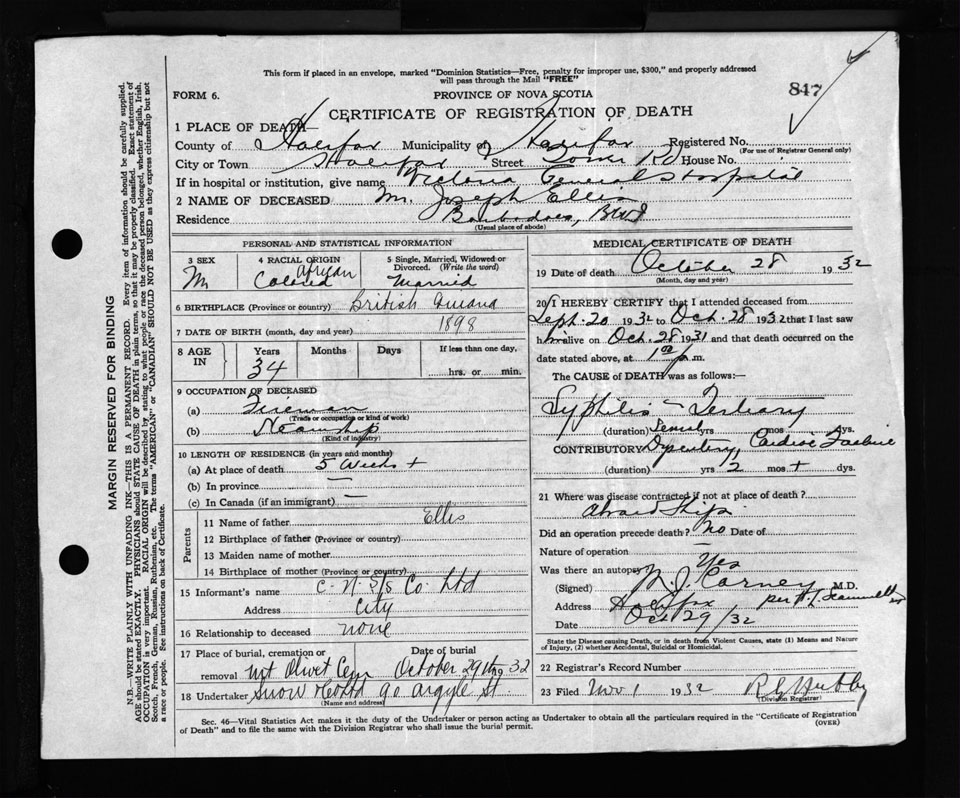 This form if placed in an envelope, marked "Dominion Statistics—Free, penalty for improper use, $300," and properly addressed
will pass through the Mail "FREE"
FORM 6.
PROVINCE OF NOVA SCOTIA
847
CERTIFICATE OF REGISTRATION OF DEATH
1 PLACE OF DEATH—
County of Halifax Municipality of Halifax Registered No.
(For use of Registrar General only)
City or Town Halifax Street Tower Rd House No.
If in hospital or institution, give name Victoria General Hospital
2 NAME OF DECEASED Mr. Joseph Ellis
Residence Barbadoes, BWI
(Usual place of abode)
PERSONAL AND STATISTICAL INFORMATION
3 SEX
M
4 RACIAL ORIGIN
African
Colored
5 Single, Married, Widowed or Divorced. (Write the word)
Married
6 BIRTHPLACE (Province or country) British Guiana
7 DATE OF BIRTH (month, day and year) 1898
8 AGE IN
Years Months Days If less than one day,
34 hrs. or min.
9 OCCUPATION OF DECEASED
(a) Fireman
(Trade or occupation or kind of work)
(b) Steamship
(Kind of industry)
10 LENGTH OF RESIDENCE (in years and months)
(a) At place of death 5 weeks +
(b) In province —
(c) In Canada (if an immigrant) —
Parents
11 Name of father Ellis
12 Birthplace of father (Province or country)
13 Maiden name of mother
14 Birthplace of mother (Province or country)
15 Informant's name C. N. S/s Co. Ltd
Address City
16 Relationship to deceased none
17 Place of burial, cremation or removal Date of burial
Mt Olivet Cem October 29th 1932
18 Undertaker Snow & Co Ltd 90 Argyle St.
(Name and address)
MEDICAL CERTIFICATE OF DEATH
19 Date of death October 28 1932
(Month, day and year)
20 I HEREBY CERTIFY that I attended deceased from
Sept. 20 1932 to Oct. 28 1932 that I last saw
him alive on Oct. 28 1931 and that death occurred on the
date stated above, at p.m.
The CAUSE of DEATH was as follows:—
Syphilis – Tertiary
(duration) yrs mos dys.
CONTRIBUTORY Dysentery, Cardiac Failure
(duration) yrs 2 mos + dys.
21 Where was disease contracted if not at place of death?
Aboard Ship
Did an operation precede death? No Date of
Nature of operation —
Was there an autopsy? Yes
(Signed) Carney M.D.
Address Halifax per
Date Oct 29/32
State the Disease causing Death, or in death from Violent Causes, state (1) Means and Nature
of Injury, (2) whether Accidental, Suicidal or Homicidal.
22 Registrar's Record Number
23 Filed Nov 1 1932
Division Registrar
Sec. 46—Vital Statistics Act makes it the duty of the Undertaker or person acting as Undertaker to obtain all the particulars required in the "Certificate of Registration
of Death" and to file the same with the Division Registrar who shall issue the burial permit.
(OVER)
MARGIN RESERVED FOR BINDING
N.B.—WRITE PLAINLY WITH UNFADING INK—THIS IS A PERMANENT RECORD. Every item of information should be carefully supplied.
AGE should be stated EXACTLY. PHYSICIANS should STATE CAUSE OF DEATH in plain terms, so that it may be properly classified. Exact statement of
OCCUPATION is very important. RACIAL ORIGIN will be described by stating to what people or race the deceased person belonged, whether English, Irish,
Scotch, French, German, Russian, Ruthenian, etc. The terms "AMERICAN" or "CANADIAN" SHOULD NOT BE USED as they express citizenship but not
a race or people. See instructions on back of Certificate.